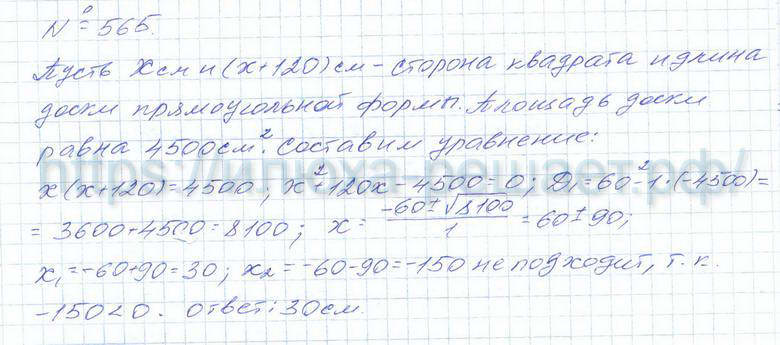 № 565.
Пусть x см и (x+120) см - сторона квадрата и длина
доски прямоугольной формы. Площадь доски
равна 4500 см². Составим уравнение:
https://илюха-решает.рф/
x(x+120)=4500; x²+120x-4500=0; D₁=60²-1·(-4500)=
= 3600+4500=8100; x= (-60±√8100)/1 = 60±90;
x₁=-60+90=30; x₂=-60-90=-150 не подходит, т.к.
-150<0. Ответ: 30 см.